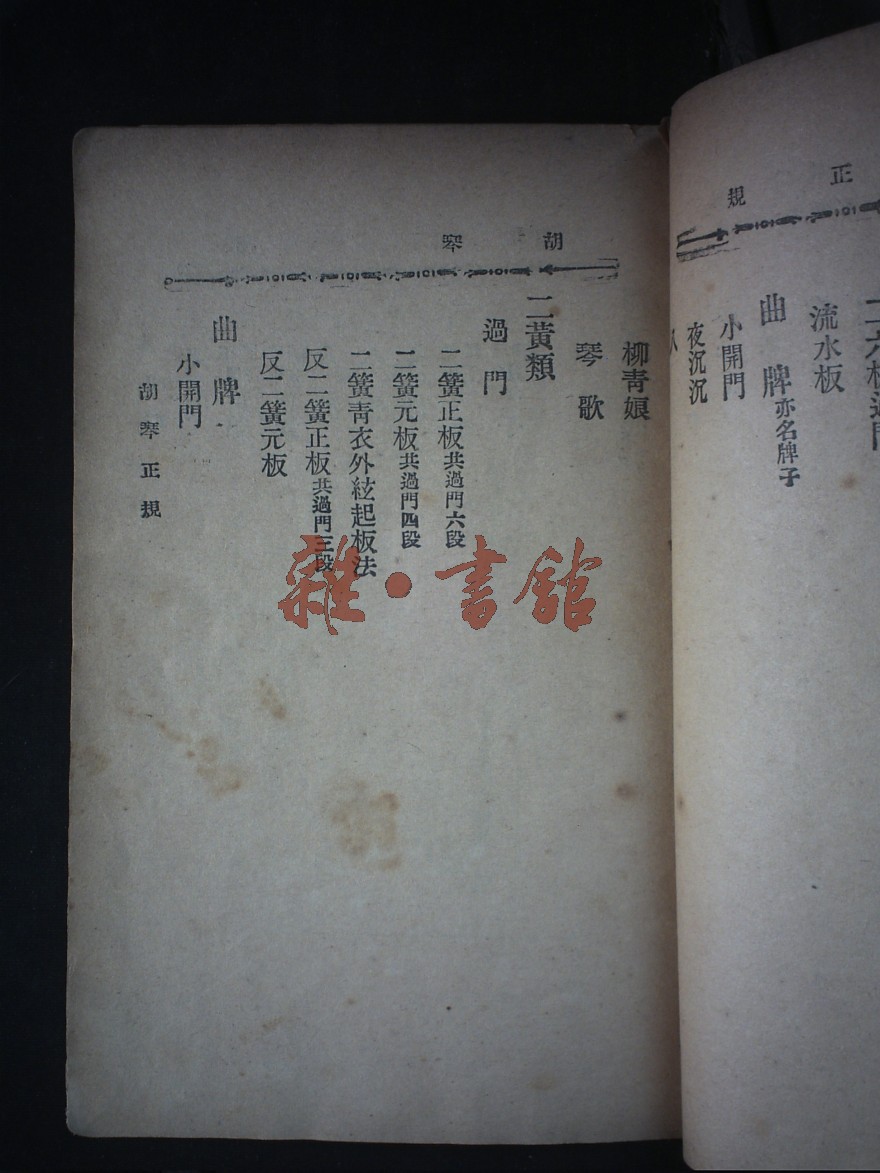 正規
流水板
曲牌亦名牌子
小開門
夜沉沉
胡琴
柳青娘
琴歌
二黃類
過門
二簧正板共過門六段
二簧元板共過門四段
二簧青衣外絃起板法
反二簧正板共過門三段
反二簧元板
曲牌
小開門
胡琴正規
雜·書館